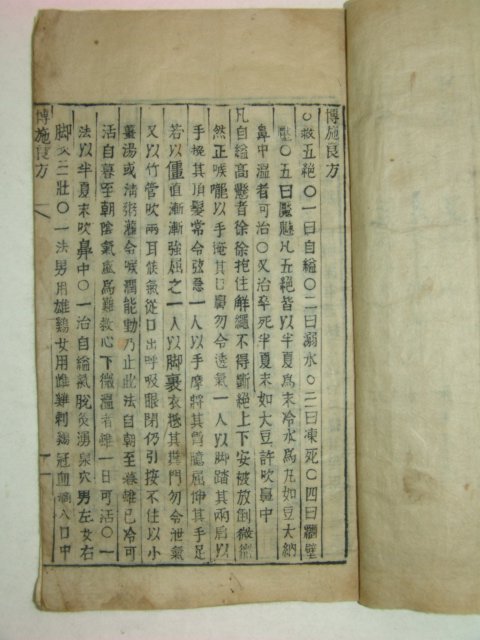 博施良方
○救五絶○一曰自縊○二曰溺水○三曰凍死○四曰壓
○五曰魘魅凡五絶皆以半夏爲末冷水爲丸如豆大納
鼻中溫者可治○又治卒死半夏末如大豆許吹鼻中
凡自縊高懸者徐徐抱住解繩不得斷絶上下安被放倒微微
然正喉嚨以手掩其口鼻勿令透氣一人以脚踏其兩肩以
手挽其頂髮常令弦急一人以手摩將其胸臆屈伸其手足
若以僵直漸漸強屈之一人以脚裹衣抵其糞門勿令泄氣
又以竹管吹兩耳候氣從口出呼吸眼開仍引按不住以小
薑湯或淸粥灌令喉潤能動乃止此法自朝至暮雖已冷可
活自暮至朝陰氣盛爲難救心下微溫者雖一日可活○一
法以半夏末吹鼻中○一治自縊氣脫灸湧泉穴男左女右
脚灸三壯○一法男用雄鷄女用雌雞刺鷄冠血滴入口中
博施良方 一